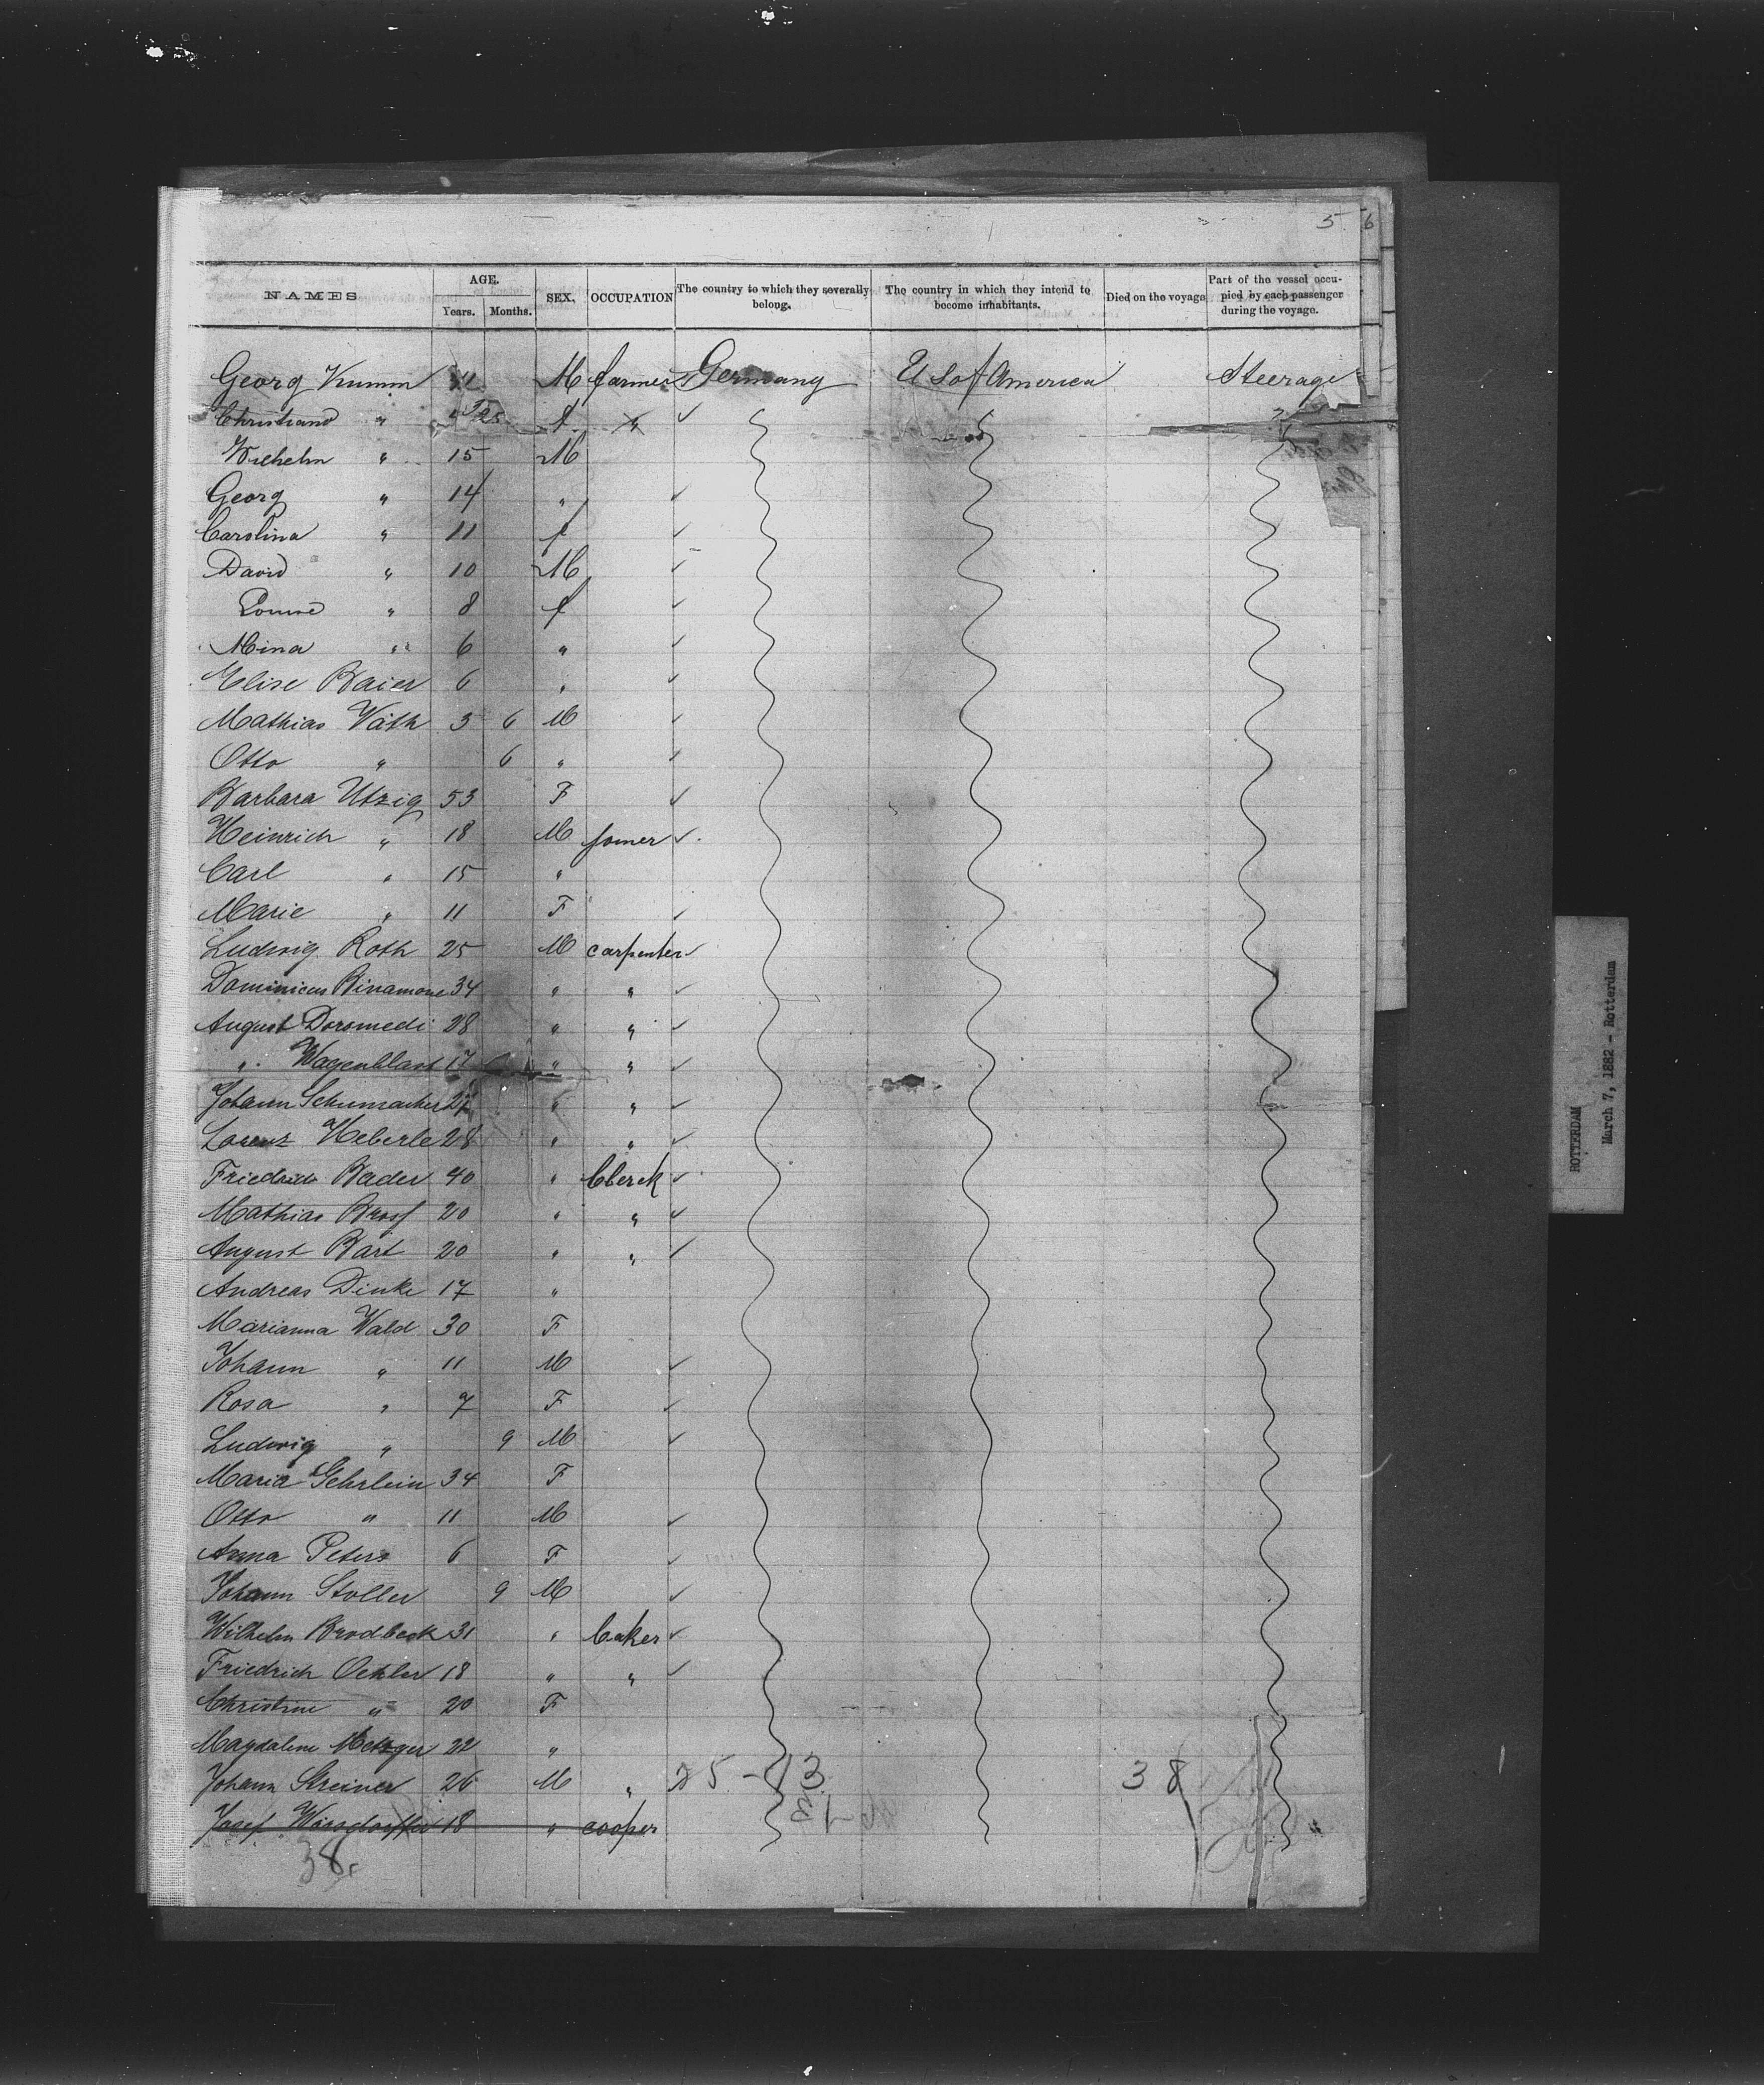 5 6
NAMES AGE. SEX. OCCUPATION The country to which they severally belong. The country in which they intend to become inhabitants. Died on the voyage Part of the vessel occupied by each passenger during the voyage.
Years. Months.
Georg Kumm M farmer Germany U S of America Steerage
Christiand " f "
Wilhelm " 15 M
Georg " 14 "
Carolina " 11 f
David " 10 M
Louise " 8 f
Mina " 6 "
Elise Baier 6 "
Mathias Väth 3 6 M
Otto " 6 "
Barbara Utzig 53 F
Heinrich " 18 M joiner
Carl " 15 "
Marie " 11 F
Ludwig Roth 25 M carpenter
Dominicus 34 " "
August Doromedi 28 " "
" Wagenblast 17 " "
Johann Schumacher " "
Lorenz Heberle 28 " "
Friedrich Bader 40 " Clerck
Mathias 20 " "
August Bart 20 " "
Andreas Dinke 17 "
Marianna Wald 30 F
Johann " 11 M
Rosa " 7 F
Ludwig " 9 M
Maria Gehrlein 34 F
Otto " 11 M
Anna Peters 6 F
Johann Stoller 9 M
Wilhelm Brodbeck 31 " baker
Friedrich Oehler 18 " "
Christine " 20 F
Magdalene Metzger 22 "
Johann Streiner 26 M " 25-13 38
Josef 18 " cooper "
38
ROTTERDAM
March 7, 1882 - Rotterdam